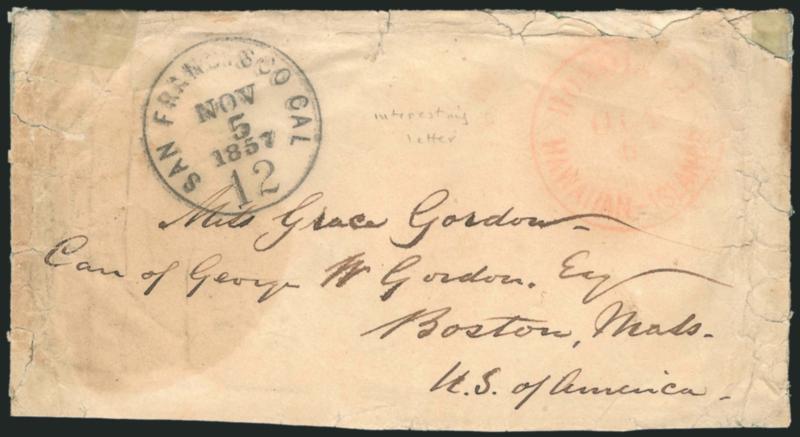 SAN FRANCISCO CAL
NOV
5
1857
12
HAWAIIAN-ISLANDS
interesting
letter
Miss Grace Gordon
Care of George W Gordon. Esq
Boston, Mass.
U.S. of America.